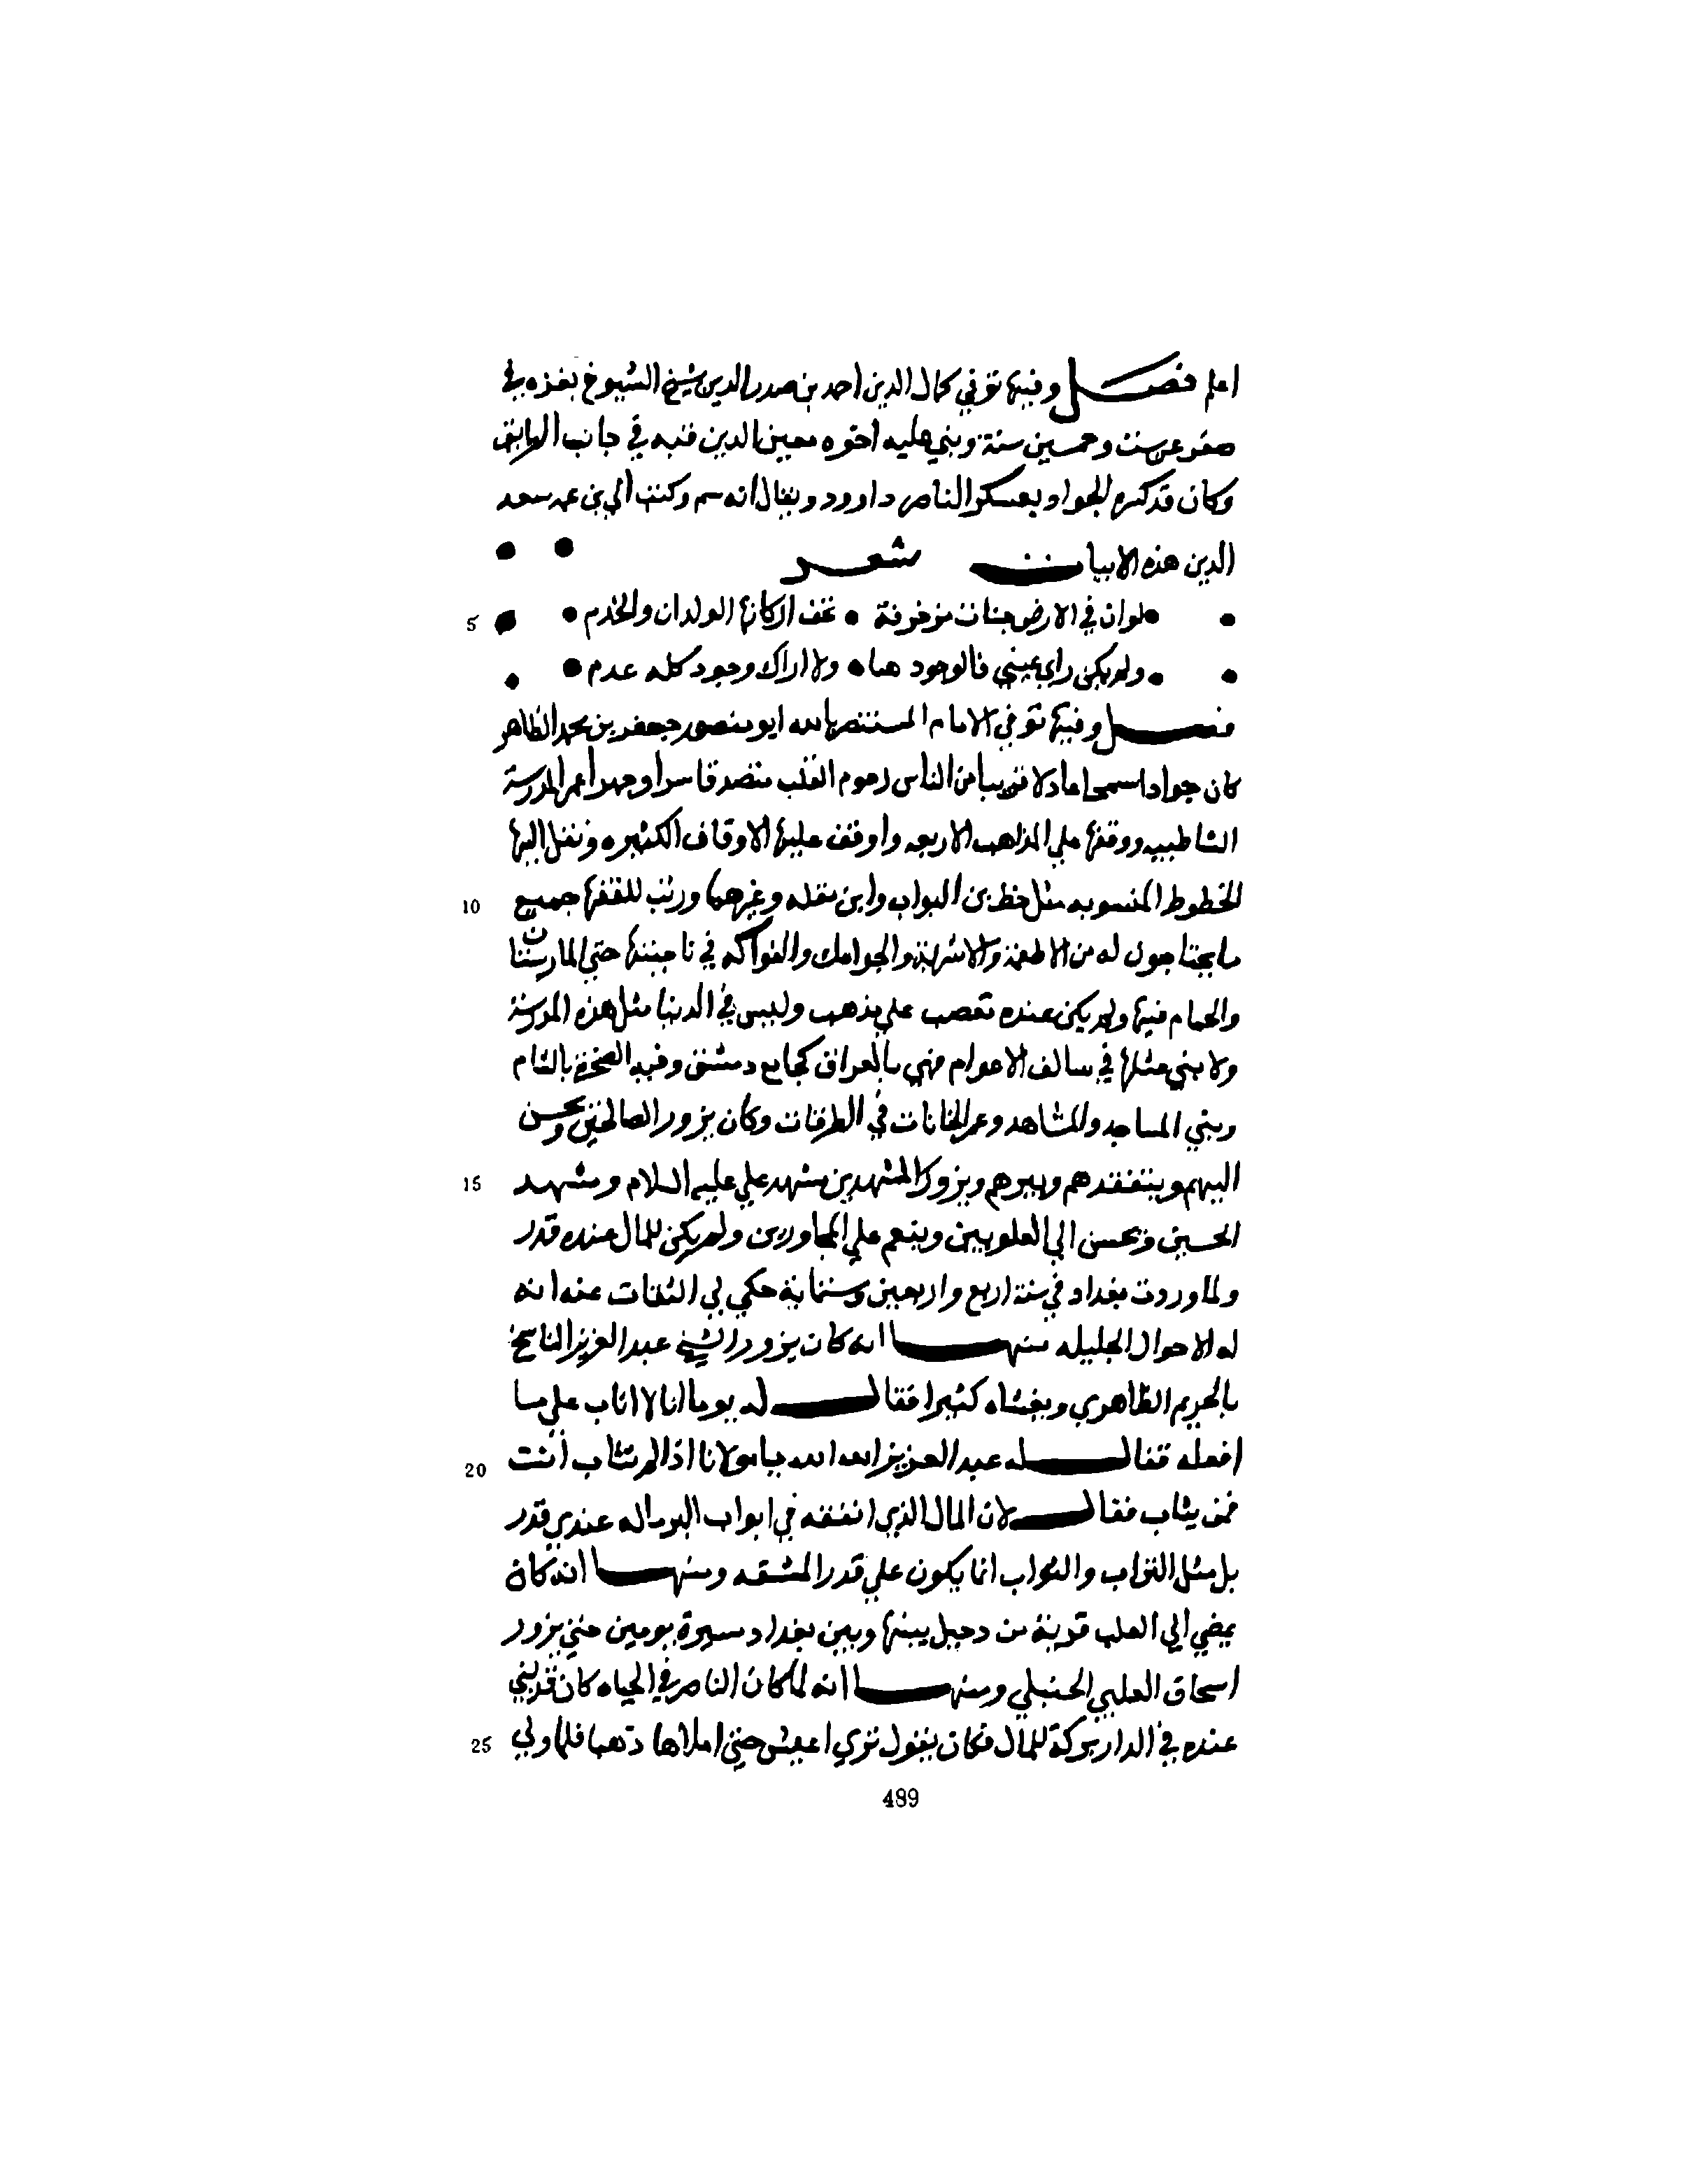 اعلم فصل وفيها توفي كمال الدين احمد بن صدر الدين شيخ الشيوخ بغزه في
صفر عن ست وخمسين سنة وبني عليه اخوه معين الدين قبه في جانب الطريق
وكان قد كسره الجواد بعسكر الناصر داوود ويقال انه سم وكتب الي بن عمه سعد
الدين هذه الابيات شعر
لو ان في الارض جنات مزخرفة • تحف اركانها الولدان والخدم • 5
ولم يكن راي عيني فالوجود هبا • ولا اراك وجود كله عدم •
فصل وفيها توفي الامام المستنصر بالله ابو منصور جعفر بن محمد الظاهر
كان جوادا سمحا عادلا قريبا من الناس رحوم القلب متصدقا سرا وجهرا عمر المدرسة
الشاطبيه ووقفها علي المذاهب الاربعه واوقف عليها الاوقاف الكثيره ونقل اليها
الخطوط المنسوبه مثل خط بن البواب وابن مقله وغيرهما ورتب للفقها جميع 10
ما يحتاجون له من الاطعمة والاشربة والجوامك والفواكه في ناحيتها حتي المارستان
والحمام فيها ولم يكن عنده تعصب علي مذهب وليس في الدنيا مثل هذه المدرسة
ولا بني مثلها في سالف الاعوام فهي بالعراق كجامع دمشق وقبه الصخرة بالشام
وبني المساجد والمشاهد وعمر الخانات في الطرقات وكان يزور الصالحين ويحسن
اليهم ويتفقدهم ويبرهم ويزور المشهدين مشهد علي عليه السلام ومشهد 15
الحسين ويحسن الي العلويين وينعم علي المجاورين ولم يكن للمال عنده قدر
ولما وردت بغداد في سنة اربع واربعين وستماية حكي لي الثقات عنه انه
له الاحوال الجليله منها انه كان يزور الشيخ عبد العزيز الناسخ
بالحريم الظاهري ويغشاه كثيرا فقال له يوما انا لا اثاب علي ما
افعله فقال له عبد العزيز الله الله يا مولانا اذا لم تثاب انت 20
فمن يثاب فقال لان المال الذي انفقه في ابواب البر ماله عندي قدر
بل مثل التراب والثواب انما يكون علي قدر المشقه ومنها انه كان
يمضي الي العلب قرية من دجيل بينها وبين بغداد مسيرة يومين حتي يزور
اسحاق العلبي الحنبلي ومنها انه لما كان الناصر في الحياه كان قد بني
عنده في الدار بركة للمال فكان يقول تري اعيش حتي املاها ذهبا فلما ولي 25
489